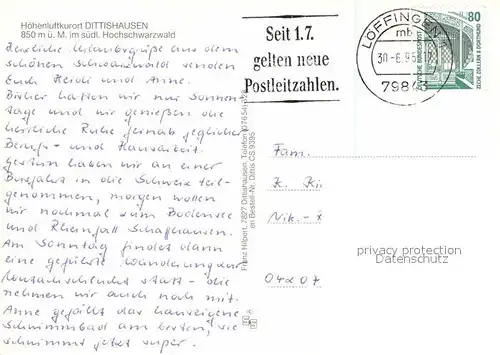 Höhenluftkurort DITTISHAUSEN
850 m ü. M. im südl. Hochschwarzwald
Herzliche Urlaubsgrüße aus dem
schönen Schwarzwald senden
Euch Heidi und Anne.
Bisher hatten wir nur Sonnen-
tage und wir genießen die
herrliche Ruhe fernab jeglicher
Berufs- und Hausarbeit.
Gestern haben wir an einer
Busfahrt in die Schweiz teil-
genommen, morgen wollen
wir nochmal zum Bodensee
und Rheinfall Schaffhausen.
Am Sonntag findet dann
eine geführte Wanderung zur
Wutachschlucht statt - die
nehmen wir auch noch mit.
Anne gefällt das hauseigene
Schwimmbad am besten, sie
schwimmt jetzt super.
Franz Hilpert, 7827 Dittishausen, Telefon (07654)
Bestell-Nr. Dittis CS 9395
Seit 1.7.
gelten neue
Postleitzahlen.
LÖFFINGEN
mb
79843
80
DEUTSCHE BUNDESPOST
ZECHE ZOLLERN II DORTMUND
Fam.
K. Ki
Nik.-
privacy protection
Datenschutz
04207